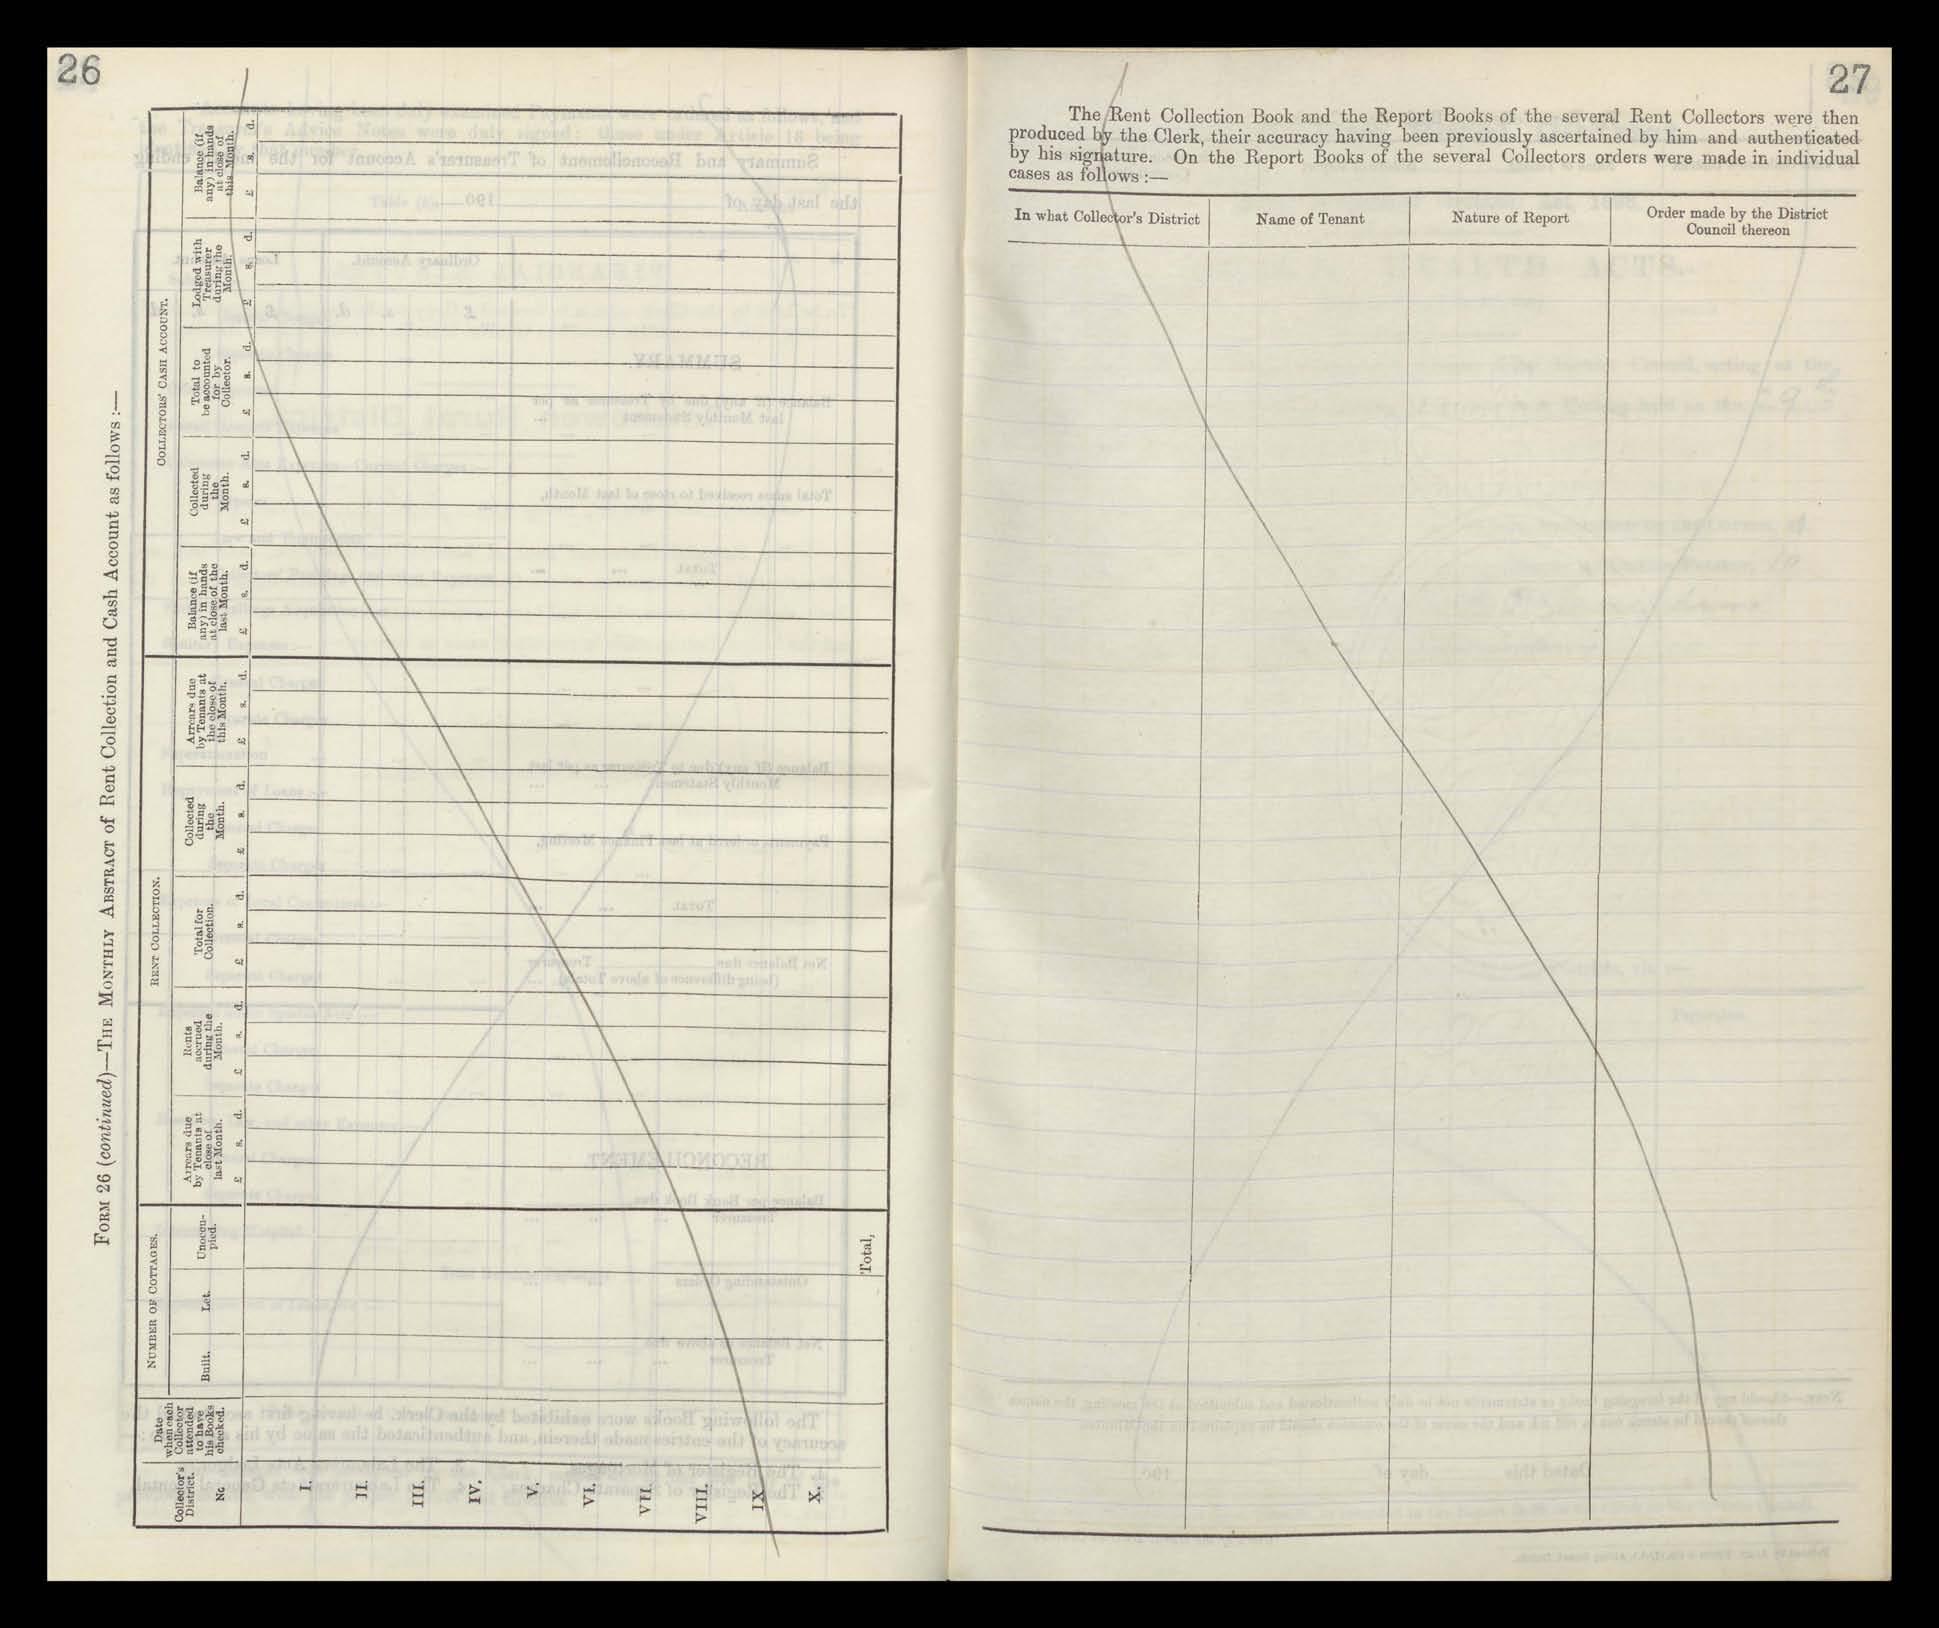 26
FORM 26 (continued)—THE MONTHLY ABSTRACT of Rent Collection and Cash Account as follows :—
Collector's District.
No.
Date when each Collector attended to have his Books checked.
NUMBER OF COTTAGES.
Built.
Let.
Unoccupied.
RENT COLLECTION.
Arrears due by Tenants at close of last Month.
£ s. d.
Rents accrued during the Month.
£ s. d.
Total for Collection.
£ s. d.
Collected during the Month.
£ s. d.
Arrears due by Tenants at the close of this Month.
£ s. d.
COLLECTORS' CASH ACCOUNT.
Balance (if any) in hands at close of the last Month.
£ s. d.
Collected during the Month.
£ s. d.
Total to be accounted for by Collector.
£ s. d.
Lodged with Treasurer during the Month.
£ s. d.
Balance (if any) in hands at close of this Month.
£ s. d.
I.
II.
III.
IV.
V.
VI.
VII.
VIII.
IX
X.
Total,
27
The Rent Collection Book and the Report Books of the several Rent Collectors were then
produced by the Clerk, their accuracy having been previously ascertained by him and authenticated
by his signature. On the Report Books of the several Collectors orders were made in individual
cases as follows :—
In what Collector's District
Name of Tenant
Nature of Report
Order made by the District
Council thereon